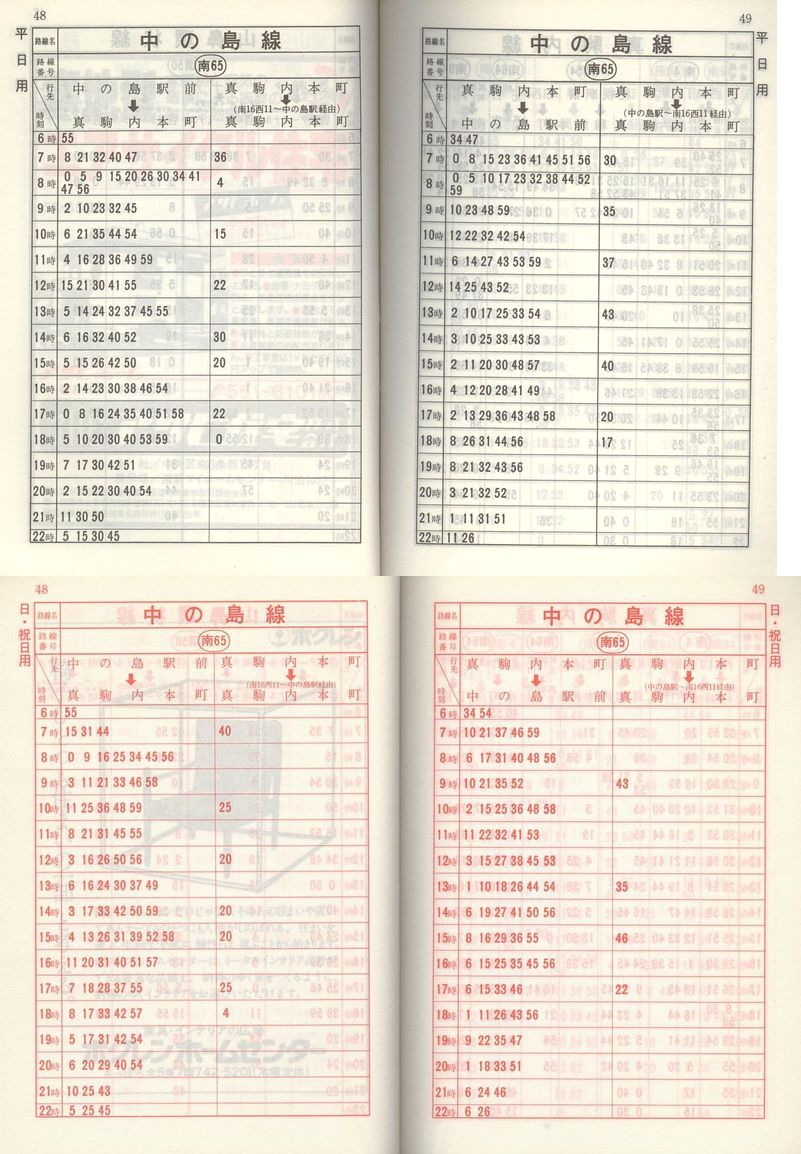 48
平日用
路線名 中の島線
路線番号 南65
行先 中の島駅前 真駒内本町
(南16西11〜中の島駅経由)
時刻 真駒内本町 真駒内本町
6時 55
7時 8 21 32 40 47 36
8時 0 5 9 15 20 26 30 34 41 4
47 56
9時 2 10 23 32 45
10時 6 21 35 44 54 15
11時 4 16 28 36 49 59
12時 15 21 30 41 55 22
13時 5 14 24 32 37 45 55
14時 6 16 32 40 52 30
15時 5 15 26 42 50 20
16時 2 14 23 30 38 46 54
17時 0 8 16 24 35 40 51 58 22
18時 5 10 20 30 40 53 59 0
19時 7 17 30 42 51
20時 2 15 22 30 40 54
21時 11 30 50
22時 5 15 30 45
49
平日用
路線名 中の島線
路線番号 南65
行先 真駒内本町 真駒内本町
(中の島駅〜南16西11経由)
時刻 中の島駅前 真駒内本町
6時 34 47
7時 0 8 15 23 36 41 45 51 56 30
8時 0 5 10 17 23 32 38 44 52
59
9時 10 23 48 59 35
10時 12 22 32 42 54
11時 6 14 27 43 53 59 37
12時 14 25 43 52
13時 2 10 17 25 33 54 43
14時 3 10 25 33 43 53
15時 2 11 20 30 48 57 40
16時 4 12 20 28 41 49
17時 2 13 29 36 43 48 58 20
18時 8 26 31 44 56 17
19時 8 21 32 43 56
20時 3 21 32 52
21時 1 11 31 51
22時 11 26
48
日・祝日用
路線名 中の島線
路線番号 南65
行先 中の島駅前 真駒内本町
(南16西11〜中の島駅経由)
時刻 真駒内本町 真駒内本町
6時 55
7時 15 31 44 40
8時 0 9 16 25 34 45 56
9時 3 11 21 33 46 58
10時 11 25 36 48 59 25
11時 8 21 31 45 55
12時 3 16 26 50 56 20
13時 6 16 24 30 37 49
14時 3 17 33 42 50 59 20
15時 4 13 26 31 39 52 58 20
16時 11 20 31 40 51 57
17時 7 18 28 37 55 25
18時 8 17 33 42 57 4
19時 5 17 31 42 54
20時 6 20 29 40 54
21時 10 25 43
22時 5 25 45
49
日・祝日用
路線名 中の島線
路線番号 南65
行先 真駒内本町 真駒内本町
(中の島駅〜南16西11経由)
時刻 中の島駅前 真駒内本町
6時 34 54
7時 10 21 37 46 59
8時 6 17 31 40 48 56
9時 10 21 35 52 43
10時 2 15 25 36 48 58
11時 11 22 32 41 53
12時 3 15 27 38 45 53
13時 1 10 18 26 44 54 35
14時 6 19 27 41 50 56
15時 8 16 29 36 55 46
16時 6 15 25 35 45 56
17時 6 15 33 46 22
18時 1 11 26 43 56
19時 9 22 35 47
20時 1 18 33 51
21時 6 24 46
22時 6 26